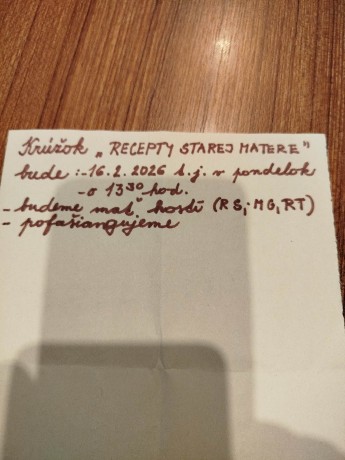 Krúžok „RECEPTY STAREJ MATERE"
bude :-16.2.2026 t.j. v pondelok
- o 13³⁰ hod.
- budeme mať hostí (RS, MG, RT)
- pofašiangujeme